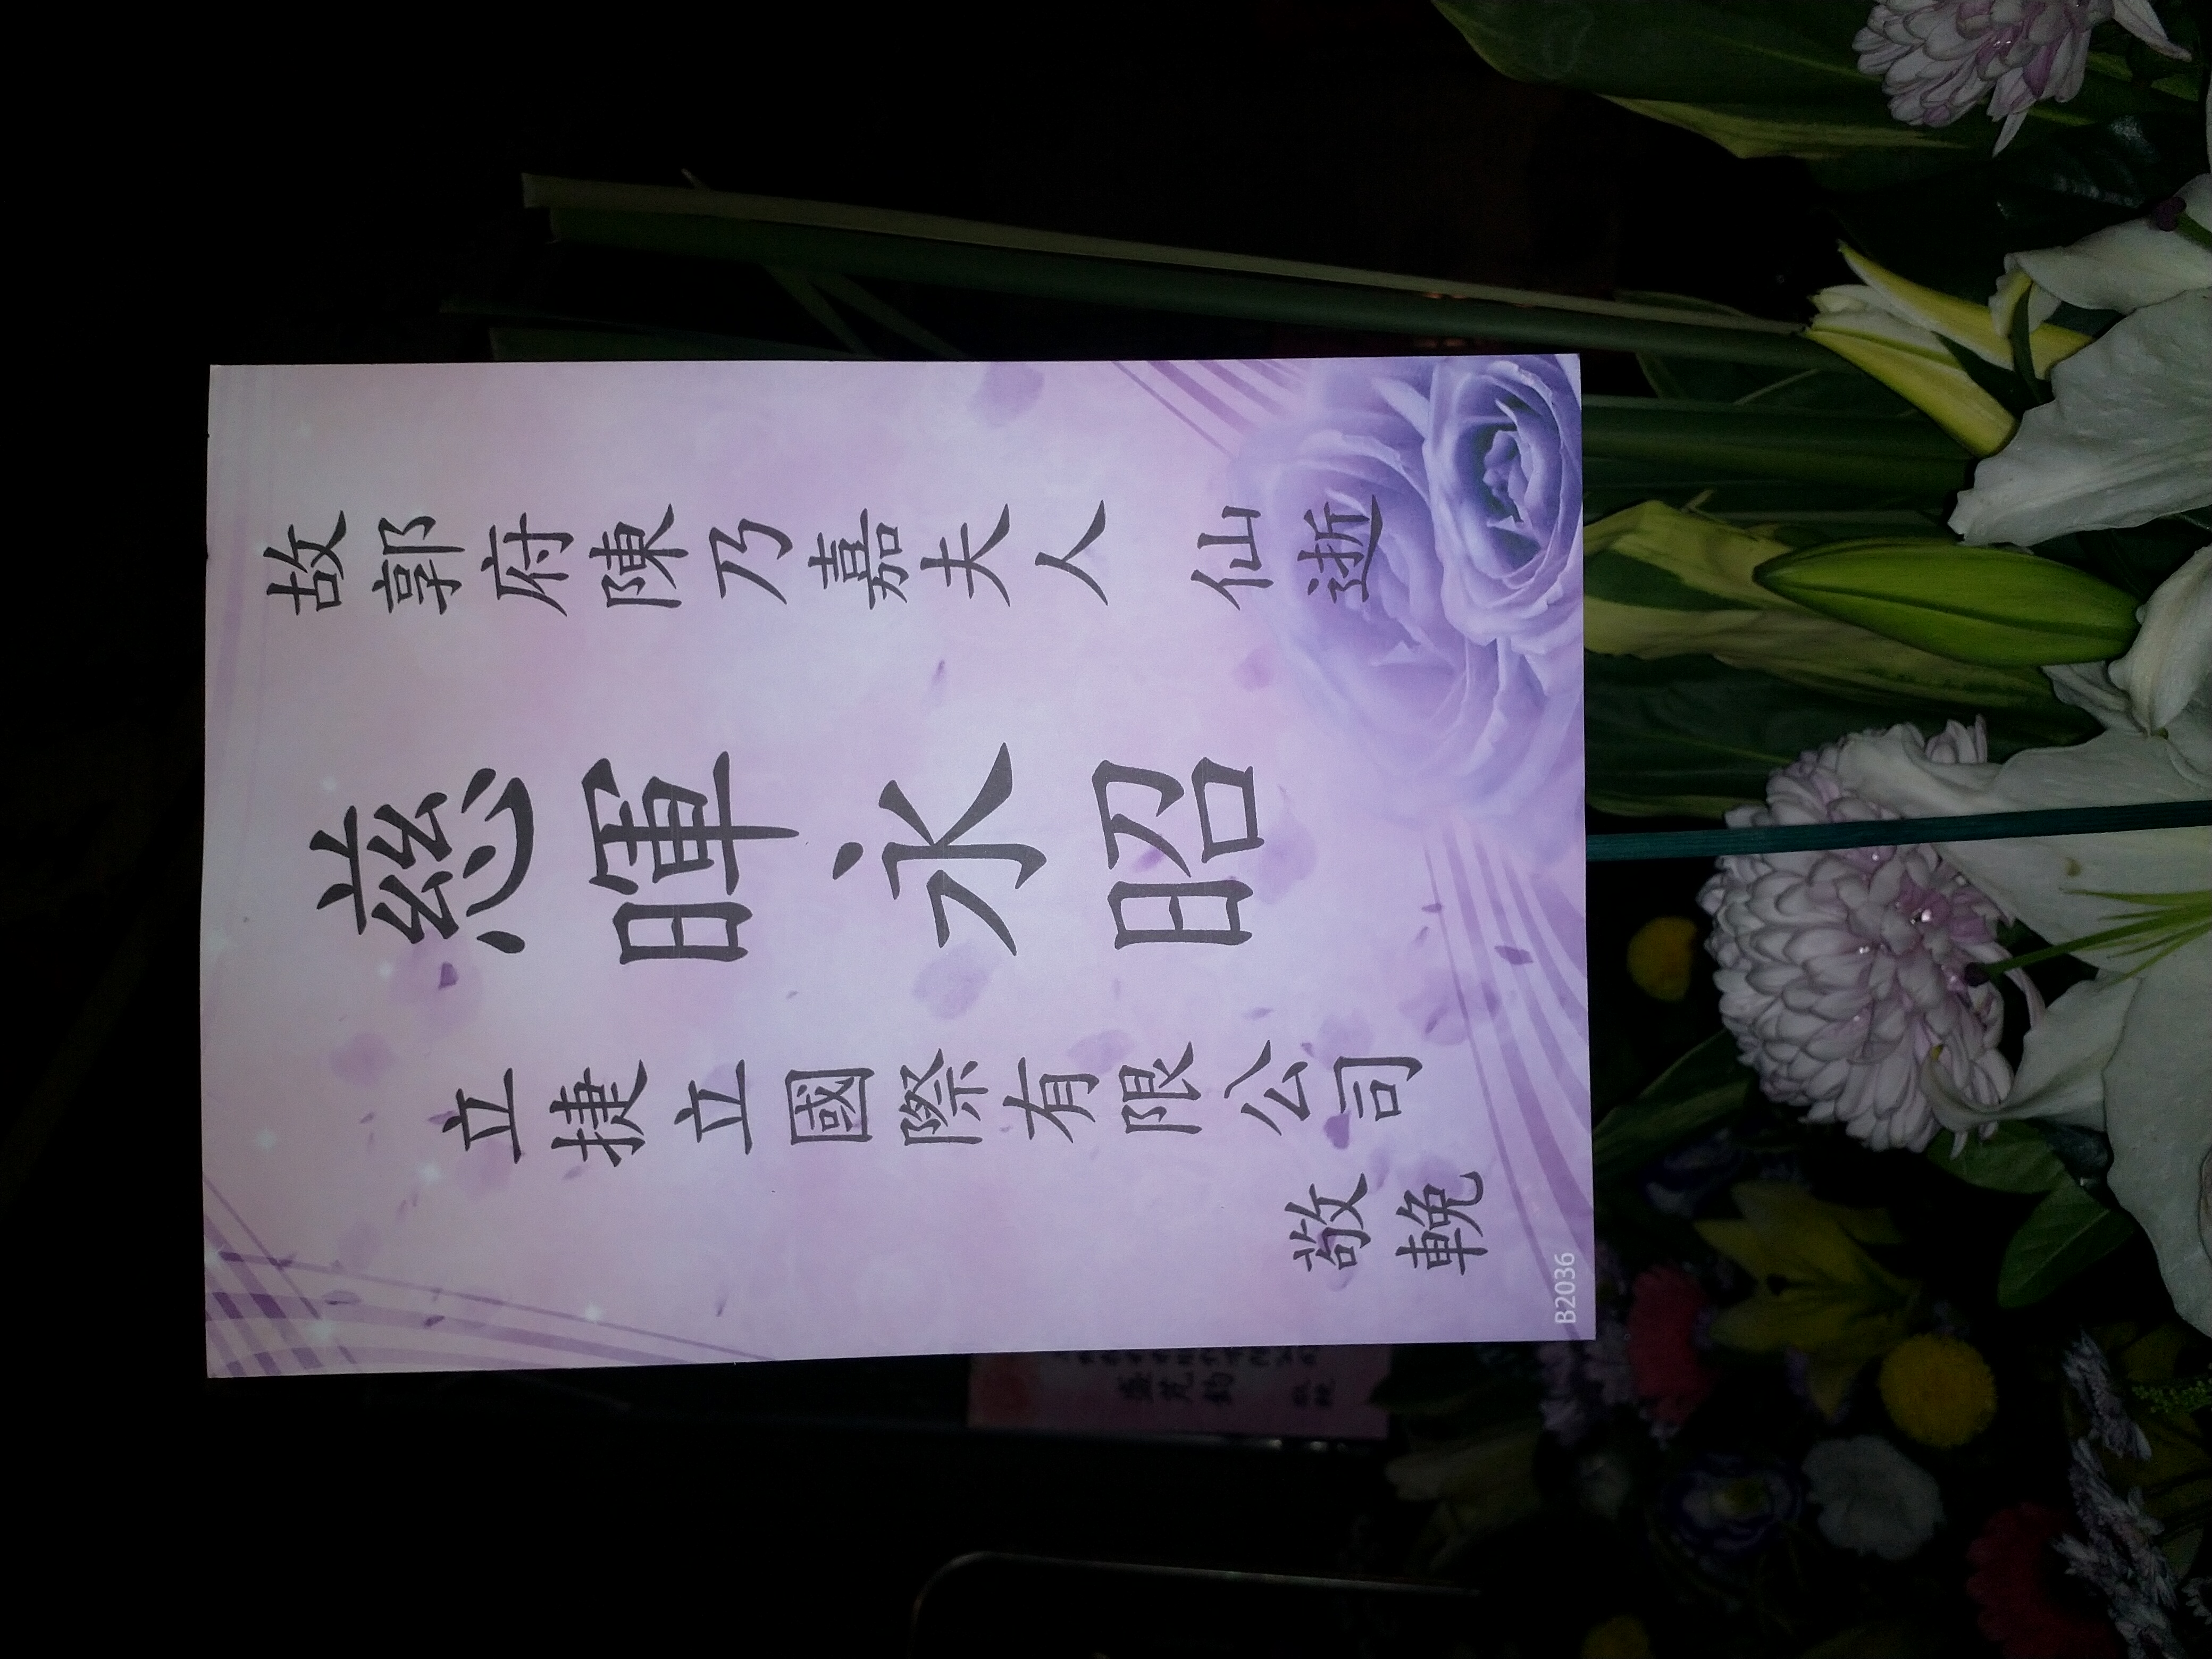 故郭府陳乃嘉夫人 仙逝
慈暉永昭
立捷立國際有限公司
敬輓
B2036